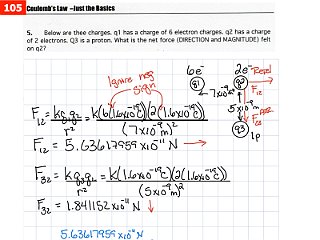 105 Coulomb's Law – Just the Basics
5. Below are thee charges. q1 has a charge of 6 electron charges. q2 has a charge
of 2 electrons. Q3 is a proton. What is the net force (DIRECTION and MAGNITUDE) felt
on q2?
Ignore neg
sign
6e⁻ 2e⁻ Repel
q1 q2
7x10⁻⁹m F₁₂
5x10⁻⁹m
F₃₂
q3 1p
F₁₂ = kq₁q₂/r² = k(6(1.6x10⁻¹⁹C)(2(1.6x10⁻¹⁹C)/(7x10⁻⁹m)²
F₁₂ = 5.63617959x10⁻¹¹ N →
F₃₂ = kq₃q₂/r² = k(1.6x10⁻¹⁹C)(2(1.6x10⁻¹⁹C)/(5x10⁻⁹m)²
F₃₂ = 1.841152x10⁻¹¹ N ↓
5.63617959x10⁻¹¹N